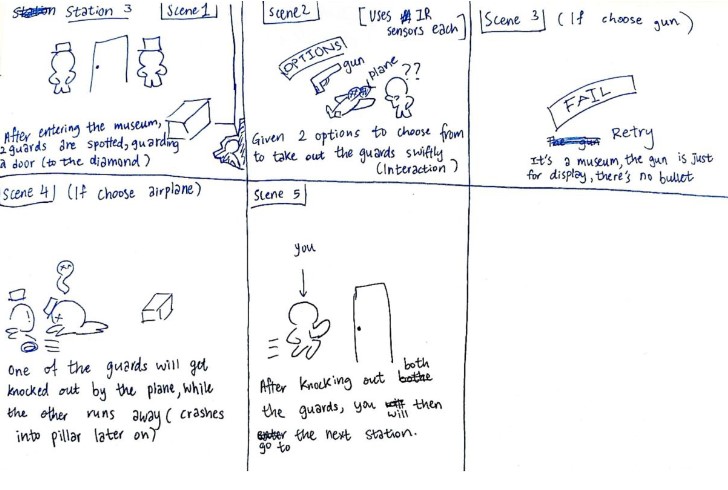 Station 3
Scene 1
After entering the museum,
2 guards are spotted, guarding
a door (to the diamond)
Scene 2
[Uses IR
sensors each]
OPTIONS
gun
plane
??
Given 2 options to choose from
to take out the guards swiftly
(Interaction)
Scene 3 (If choose gun)
FAIL
Retry
It's a museum, the gun is just
for display, there's no bullet
Scene 4 (If choose airplane)
One of the guards will get
knocked out by the plane, while
the other runs away (crashes
into pillar later on)
Scene 5
you
After knocking out both
the guards, you will then
go to the next station.